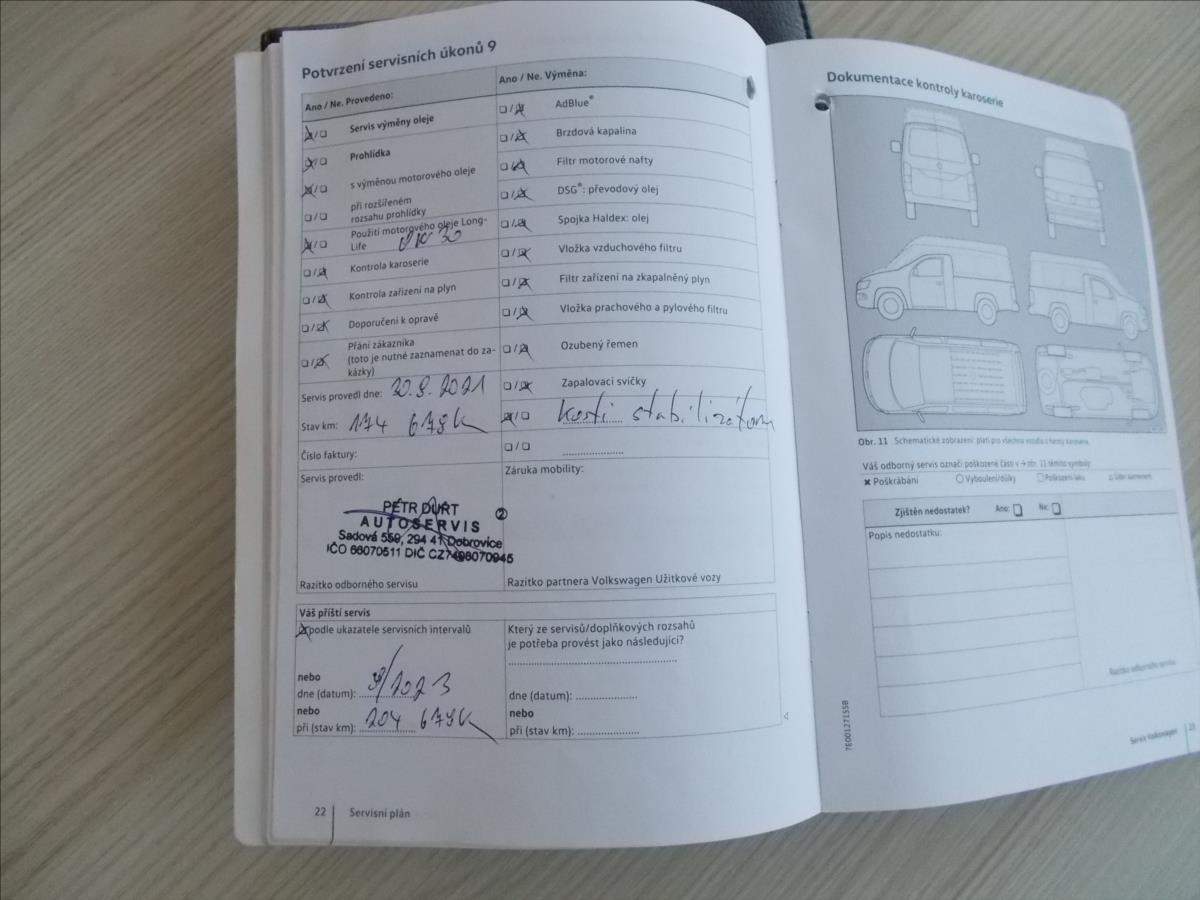 Potvrzení servisních úkonů 9
Ano / Ne. Provedeno:
Servis výměny oleje
Prohlídka
s výměnou motorového oleje
při rozšířeném
rozsahu prohlídky
Použití motorového oleje Long-
Life
Kontrola karoserie
Kontrola zařízení na plyn
Doporučení k opravě
Přání zákazníka
(toto je nutné zaznamenat do za-
kázky)
Servis provedl dne: 2021
Stav km: 174 678
Číslo faktury:
Servis provedl:
PETR DURT
AUTOSERVIS
Sadová 559, 294 41 Dobrovice
IČO 66070511 DIČ CZ7498070945
②
Razítko odborného servisu
Ano / Ne. Výměna:
AdBlue®
Brzdová kapalina
Filtr motorové nafty
DSG®: převodový olej
Spojka Haldex: olej
Vložka vzduchového filtru
Filtr zařízení na zkapalněný plyn
Vložka prachového a pylového filtru
Ozubený řemen
Zapalovací svíčky
Záruka mobility:
Razítko partnera Volkswagen Užitkové vozy
Váš příští servis
podle ukazatele servisních intervalů
nebo
dne (datum): 9/2023
nebo
při (stav km): 204 678
Který ze servisů/doplňkových rozsahů
je potřeba provést jako následující?
dne (datum):
nebo
při (stav km):
22 Servisní plán
Dokumentace kontroly karoserie
Obr. 11 Schematické zobrazení: platí pro všechna vozidla a formy karoserie.
Váš odborný servis označí poškozené části v → obr. 11 těmito symboly
Poškrábání Vyboulení/důlky Poškození laku
Zjištěn nedostatek? Ano: Ne:
Popis nedostatku:
Razítko odborného servisu
7E0012715SB
Servis Volkswagen 23